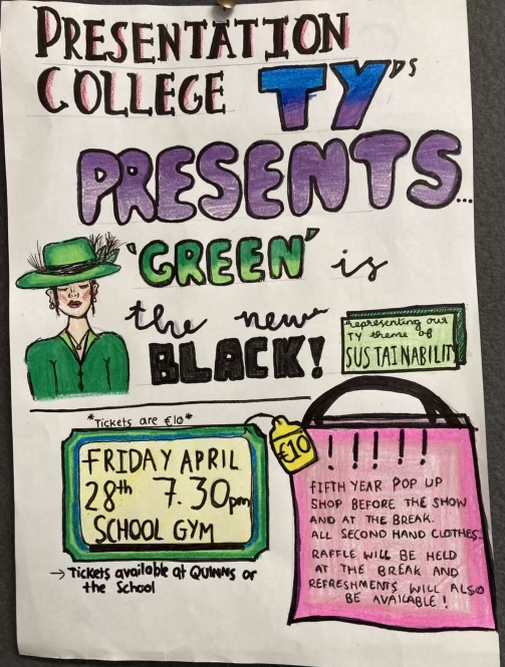 PRESENTATION
COLLEGE TY'DS
PRESENTS...
'GREEN' is
the new
BLACK!
representing our
TY theme of
SUSTAINABILITY
*Tickets are €10*
FRIDAY APRIL
28th 7.30pm
SCHOOL GYM
→ Tickets available at QUINNS or
the School
€10
! ! ! ! !
FIFTH YEAR POP UP
SHOP BEFORE THE SHOW
AND AT THE BREAK.
ALL SECOND HAND CLOTHES.
RAFFLE WILL BE HELD
AT THE BREAK AND
REFRESHMENTS WILL ALSO
BE AVAILABLE!